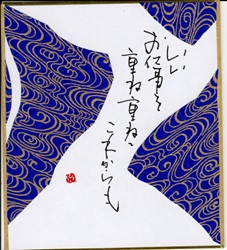 いい
お仕事を
重ね重ね、
これからも